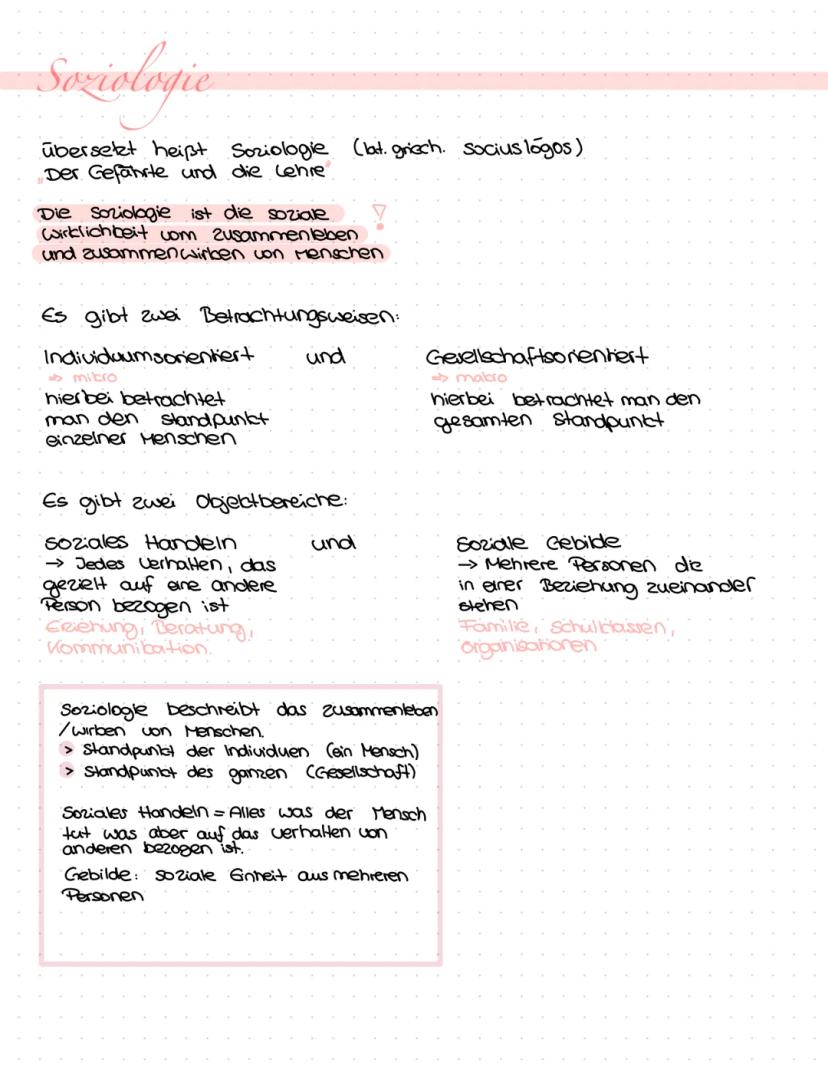 Soziologie
übersetzt heißt Soziologie (lat. griech. socius lógos)
"Der Gefährte und die Lehre"
Die Soziologie ist die soziale
Wirklichkeit vom Zusammenleben
und Zusammenwirken von Menschen
!
Es gibt zwei Betrachtungsweisen:
Individuumsorientiert und Gesellschaftsorientiert
⇒ mikro
⇒ makro
hierbei betrachtet
man den Standpunkt
einzelner Menschen
hierbei betrachtet man den
gesamten Standpunkt
Es gibt zwei Objektbereiche:
soziales Handeln und Soziale Gebilde
→ Jedes Verhalten, das
gezielt auf eine andere
Person bezogen ist
Erziehung, Beratung,
Kommunikation.
→ Mehrere Personen die
in einer Beziehung zueinander
stehen
Familie, Schulklassen,
Organisationen
Soziologie beschreibt das zusammenleben
/wirken von Menschen.
> Standpunkt der Individuen (ein Mensch)
> Standpunkt des ganzen (Gesellschaft)
Soziales Handeln = Alles was der Mensch
tut was aber auf das Verhalten von
anderen bezogen ist.
Gebilde: soziale Einheit aus mehreren
Personen